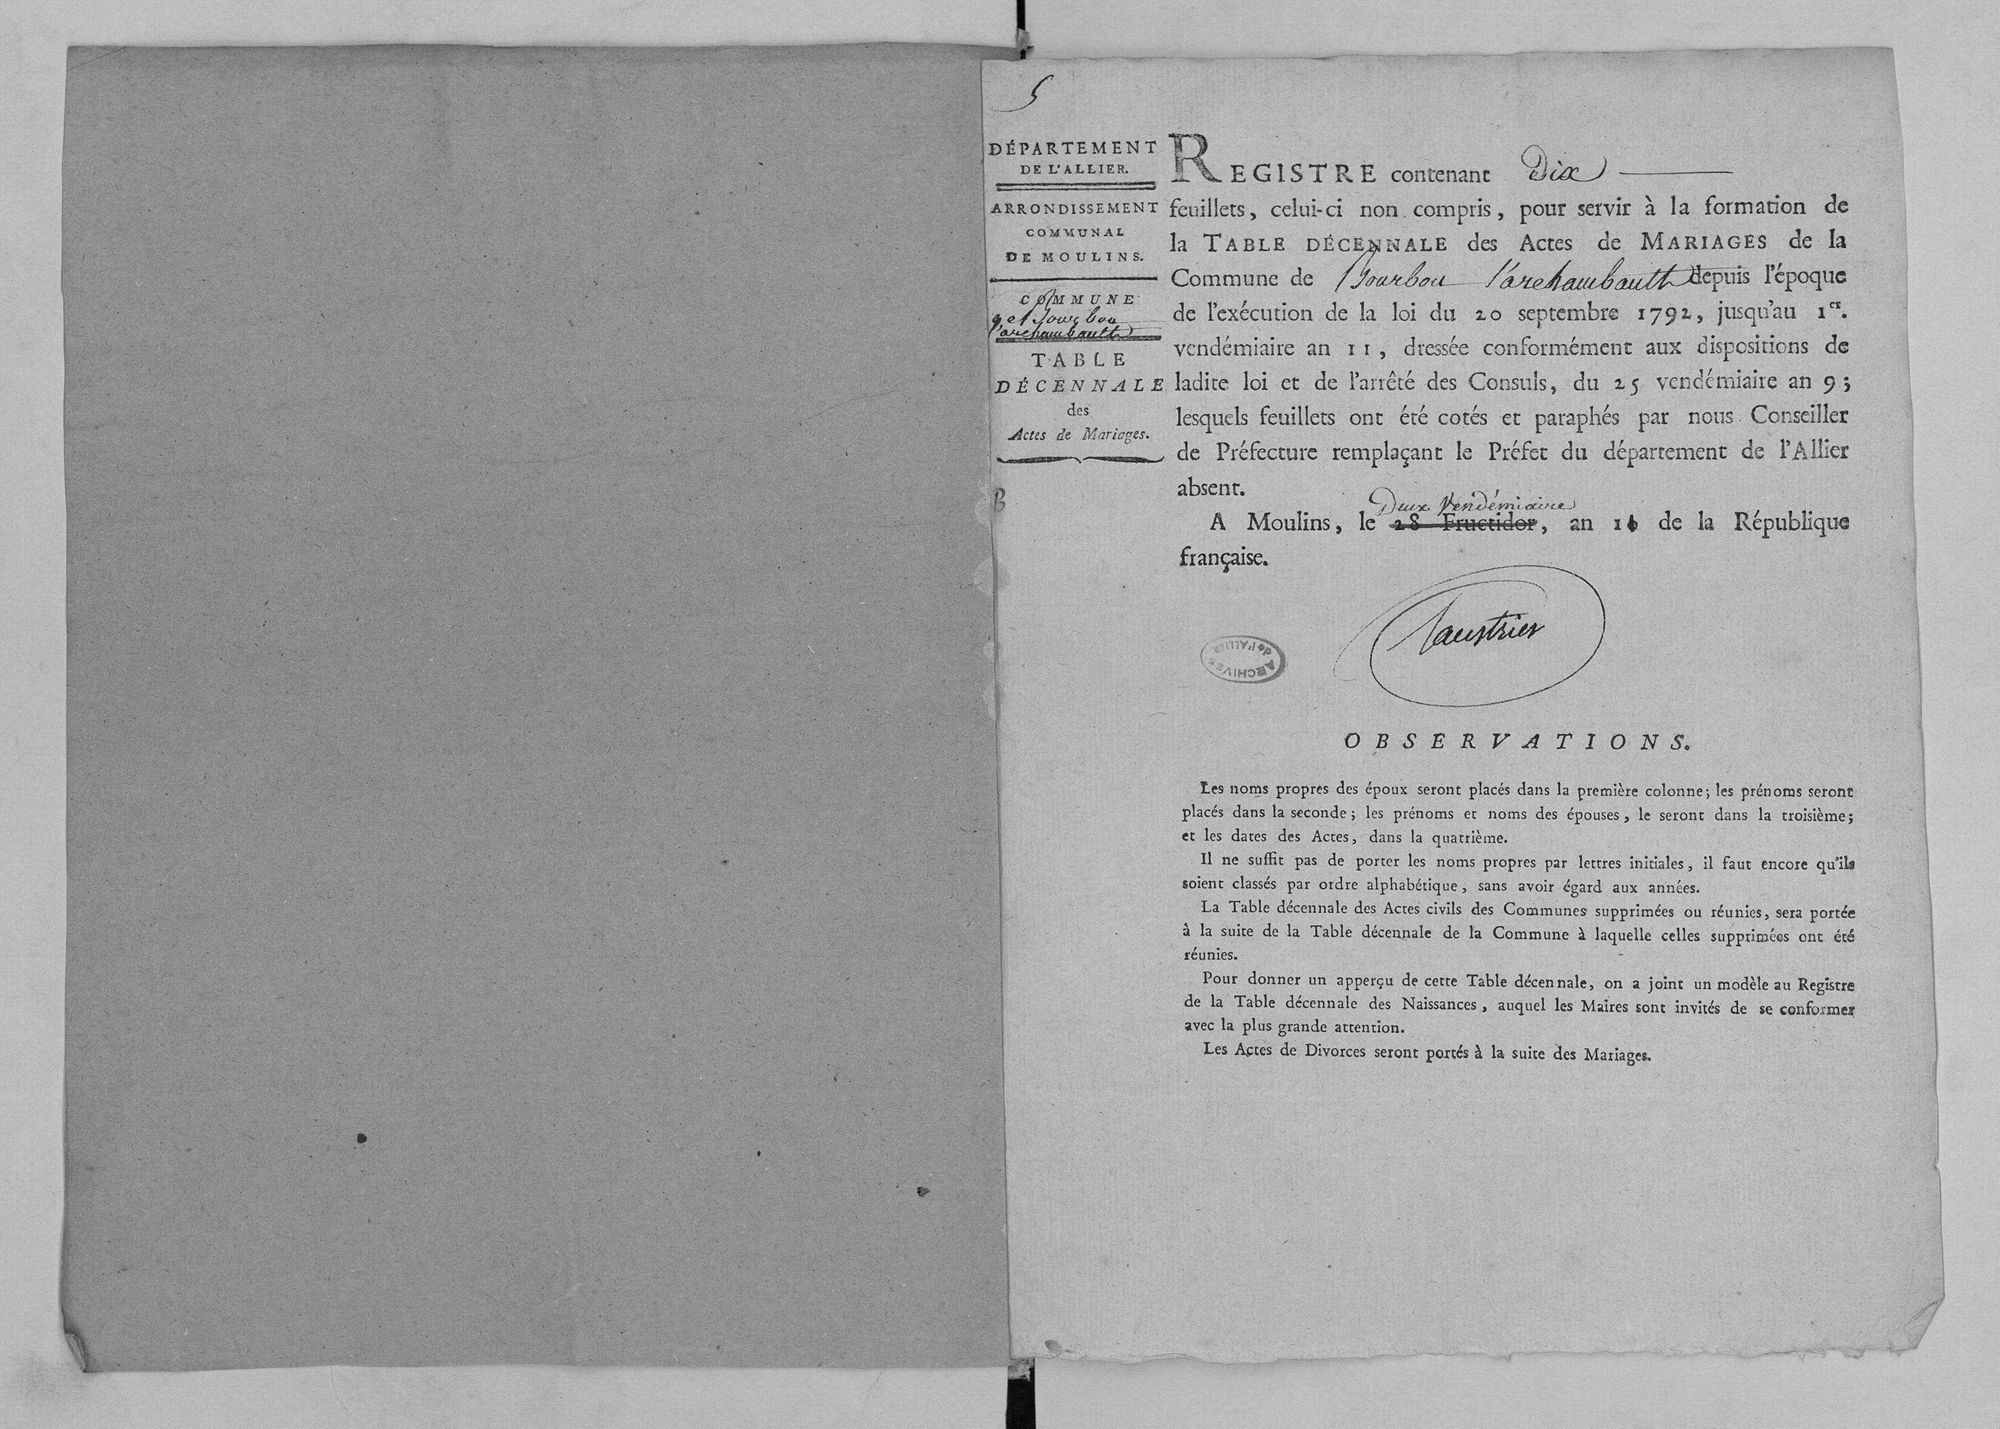 5
DÉPARTEMENT
DE L'ALLIER.
ARRONDISSEMENT
COMMUNAL
DE MOULINS.
COMMUNE
de Bourbon
l'archambault
TABLE
DÉCENNALE
des
Actes de Mariages.
B
REGISTRE contenant Dix
feuillets, celui-ci non compris, pour servir à la formation de
la TABLE DÉCENNALE des Actes de MARIAGES de la
Commune de Bourbon l'archambault depuis l'époque
de l'exécution de la loi du 20 septembre 1792, jusqu'au 1er.
vendémiaire an 11, dressée conformément aux dispositions de
ladite loi et de l'arrêté des Consuls, du 25 vendémiaire an 9;
lesquels feuillets ont été cotés et paraphés par nous Conseiller
de Préfecture remplaçant le Préfet du département de l'Allier
absent.
Deux Vendémiaire
A Moulins, le 28 Fructidor, an 11 de la République
française.
ARCHIVES
de l'ALLIER
OBSERVATIONS.
Les noms propres des époux seront placés dans la première colonne; les prénoms seront
placés dans la seconde; les prénoms et noms des épouses, le seront dans la troisième;
et les dates des Actes, dans la quatrième.
Il ne suffit pas de porter les noms propres par lettres initiales, il faut encore qu'ils
soient classés par ordre alphabétique, sans avoir égard aux années.
La Table décennale des Actes civils des Communes supprimées ou réunies, sera portée
à la suite de la Table décennale de la Commune à laquelle celles supprimées ont été
réunies.
Pour donner un apperçu de cette Table décennale, on a joint un modèle au Registre
de la Table décennale des Naissances, auquel les Maires sont invités de se conformer
avec la plus grande attention.
Les Actes de Divorces seront portés à la suite des Mariages.